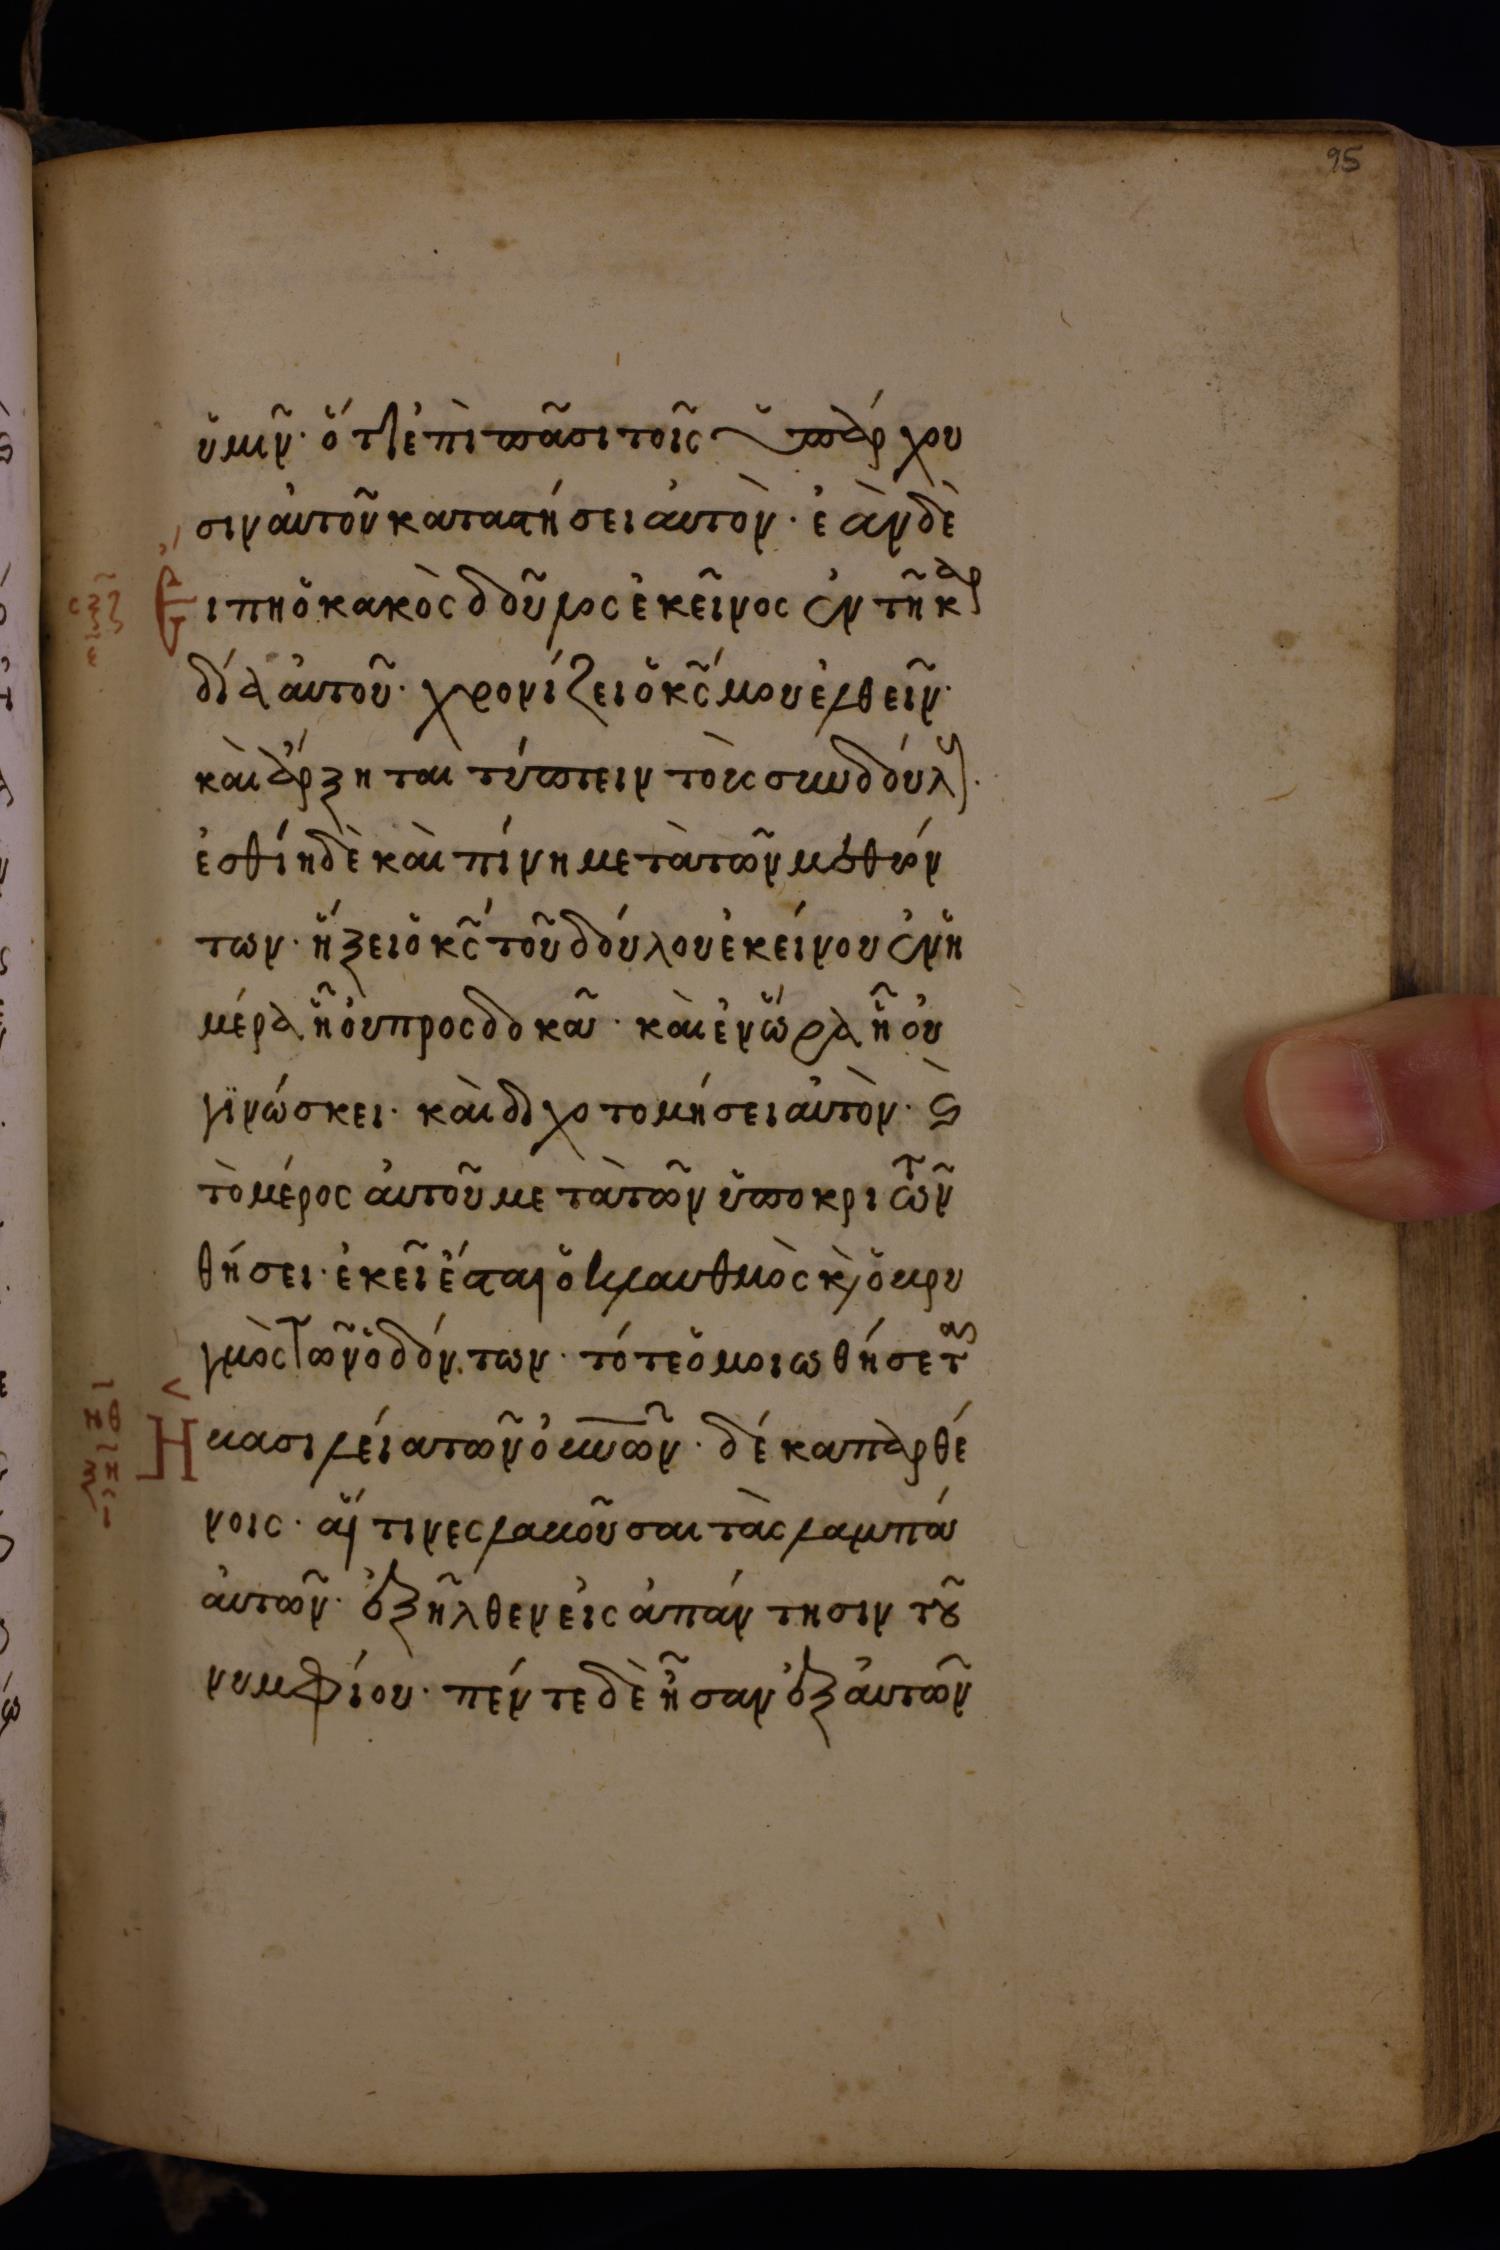 95
ὑμῖν· ὅτι ἐπὶ πᾶσι τοῖς ὑπάρχου
σιν αὐτοῦ καταστήσει αὐτὸν· ἐὰν δὲ
εἴπη ὁ κακὸς δοῦλος ἐκεῖνος ἐν τῆ καρ
δία αὐτοῦ· χρονίζει ὁ κς μου ἐλθεῖν·
καὶ ἄρξηται τύπτειν τοὺς συνδούλους·
ἐσθίη δὲ καὶ πίνη μετὰ τῶν μεθυόν
των· ἥξει ὁ κς τοῦ δούλου ἐκείνου ἐν ἡ
μέρα ἧ οὐ προσδοκᾶ· καὶ ἐν ὥρα ἧ οὐ
γϊνώσκει· καὶ διχοτομήσει αὐτὸν· καὶ
τὸ μέρος αὐτοῦ μετὰ τῶν ὑποκριτῶν
θήσει· ἐκεῖ ἔσται ὁ κλαυθμὸς καὶ ὁ βρυ
γμὸς τῶν ὀδόντων· τότε ὁμοιωθήσεται
Ἡ βασιλεία τῶν οὐνῶν· δέκα παρθέ
νοις· αἵτινες λαβοῦσαι τὰς λαμπά
αὐτῶν· ἐξῆλθεν εἰς ἀπάντησιν τοῦ
νυμφίου· πέντε δὲ ἦσαν ἐξ αὐτῶν